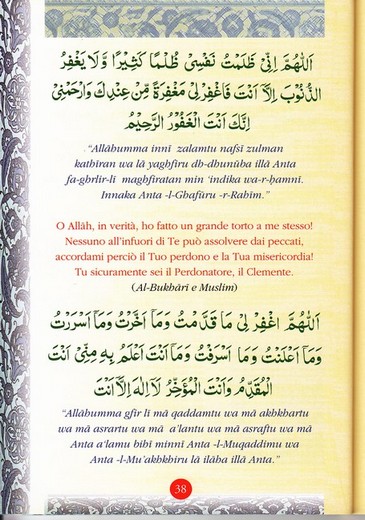 اَللّٰهُمَّ اِنِّىْ ظَلَمْتُ نَفْسِىْ ظُلْمًا كَثِيْرًا وَّلَا يَغْفِرُ
الذُّنُوْبَ اِلَّا اَنْتَ فَاغْفِرْ لِىْ مَغْفِرَةً مِّنْ عِنْدِكَ وَارْحَمْنِىْ
اِنَّكَ اَنْتَ الْغَفُوْرُ الرَّحِيْمُ
“Allāhumma innī zalamtu nafsī zulman
kathīran wa lā yaghfiru dh-dhunūba illā Anta
fa-ghrlir-lī maghfiratan min ‘indika wa-r-ḥamnī.
Innaka Anta -l-Ghafūru -r-Rahīm.”
O Allâh, in verità, ho fatto un grande torto a me stesso!
Nessuno all'infuori di Te può assolvere dai peccati,
accordami perciò il Tuo perdono e la Tua misericordia!
Tu sicuramente sei il Perdonatore, il Clemente.
(Al-Bukhārī e Muslim)
اَللّٰهُمَّ اغْفِرْ لِىْ مَا قَدَّمْتُ وَمَا اَخَّرْتُ وَمَا اَسْرَرْتُ
وَمَا اَعْلَنْتُ وَمَا اَسْرَفْتُ وَمَا اَنْتَ اَعْلَمُ بِهٖ مِنِّىْ اَنْتَ
الْمُقَدِّمُ وَاَنْتَ الْمُؤَخِّرُ لَا اِلٰهَ اِلَّا اَنْتَ
“Allāhumma gfir lī mā qaddamtu wa mā akhkhartu
wa mā asrartu wa mā a‘lantu wa mā asraftu wa mā
Anta a‘lamu bihī minnī Anta -l-Muqaddimu wa
Anta -l-Mu’akhkhiru lā ilāha illā Anta.”
38